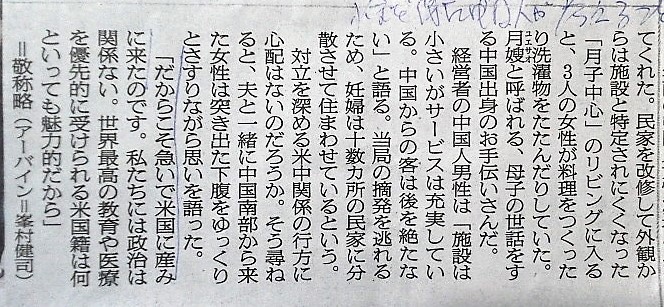 てくれた。民家を改修して外観か
らは施設と特定されにくくなった
「月子中心」のリビングに入る
と、3人の女性が料理をつくった
り洗濯物をたたんだりしていた。
月嫂と呼ばれる、母子の世話をす
る中国出身のお手伝いさんだ。
経営者の中国人男性は「施設は
小さいがサービスは充実してい
る。中国からの客は後を絶たな
い」と語る。当局の摘発を逃れる
ため、妊婦は十数カ所の民家に分
散させて住まわせているという。
対立を深める米中関係の行方に
心配はないのだろうか。そう尋ね
ると、夫と一緒に中国南部から来
た女性は突き出た下腹をゆっくり
とさすりながら思いを語った。
「だからこそ急いで米国に産み
に来たのです。私たちには政治は
関係ない。世界最高の教育や医療
を優先的に受けられる米国籍は何
といっても魅力的だから」
＝敬称略（アーバイン＝峯村健司）